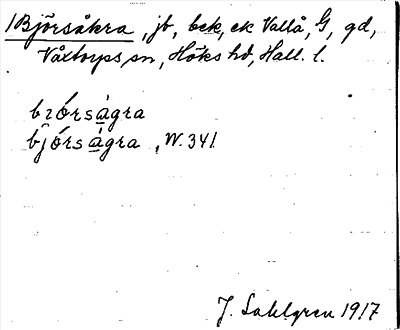 1 Björsåkra, jb, bek, ek Vallå, G, gd,
Våxtorps sn, Höks hd, Hall. l.
bɪórsàgra
bjórsàgra, W. 341
J. Sahlgren 1917